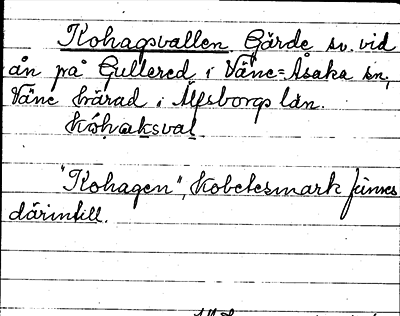 Kohagsvallen Gärde sv. vid
ån på Gullered i Väne-Åsaka sn,
Väne härad i Älfsborgs län.
kóhaksval
"Kohagen", kobetesmark finnes
därintill.